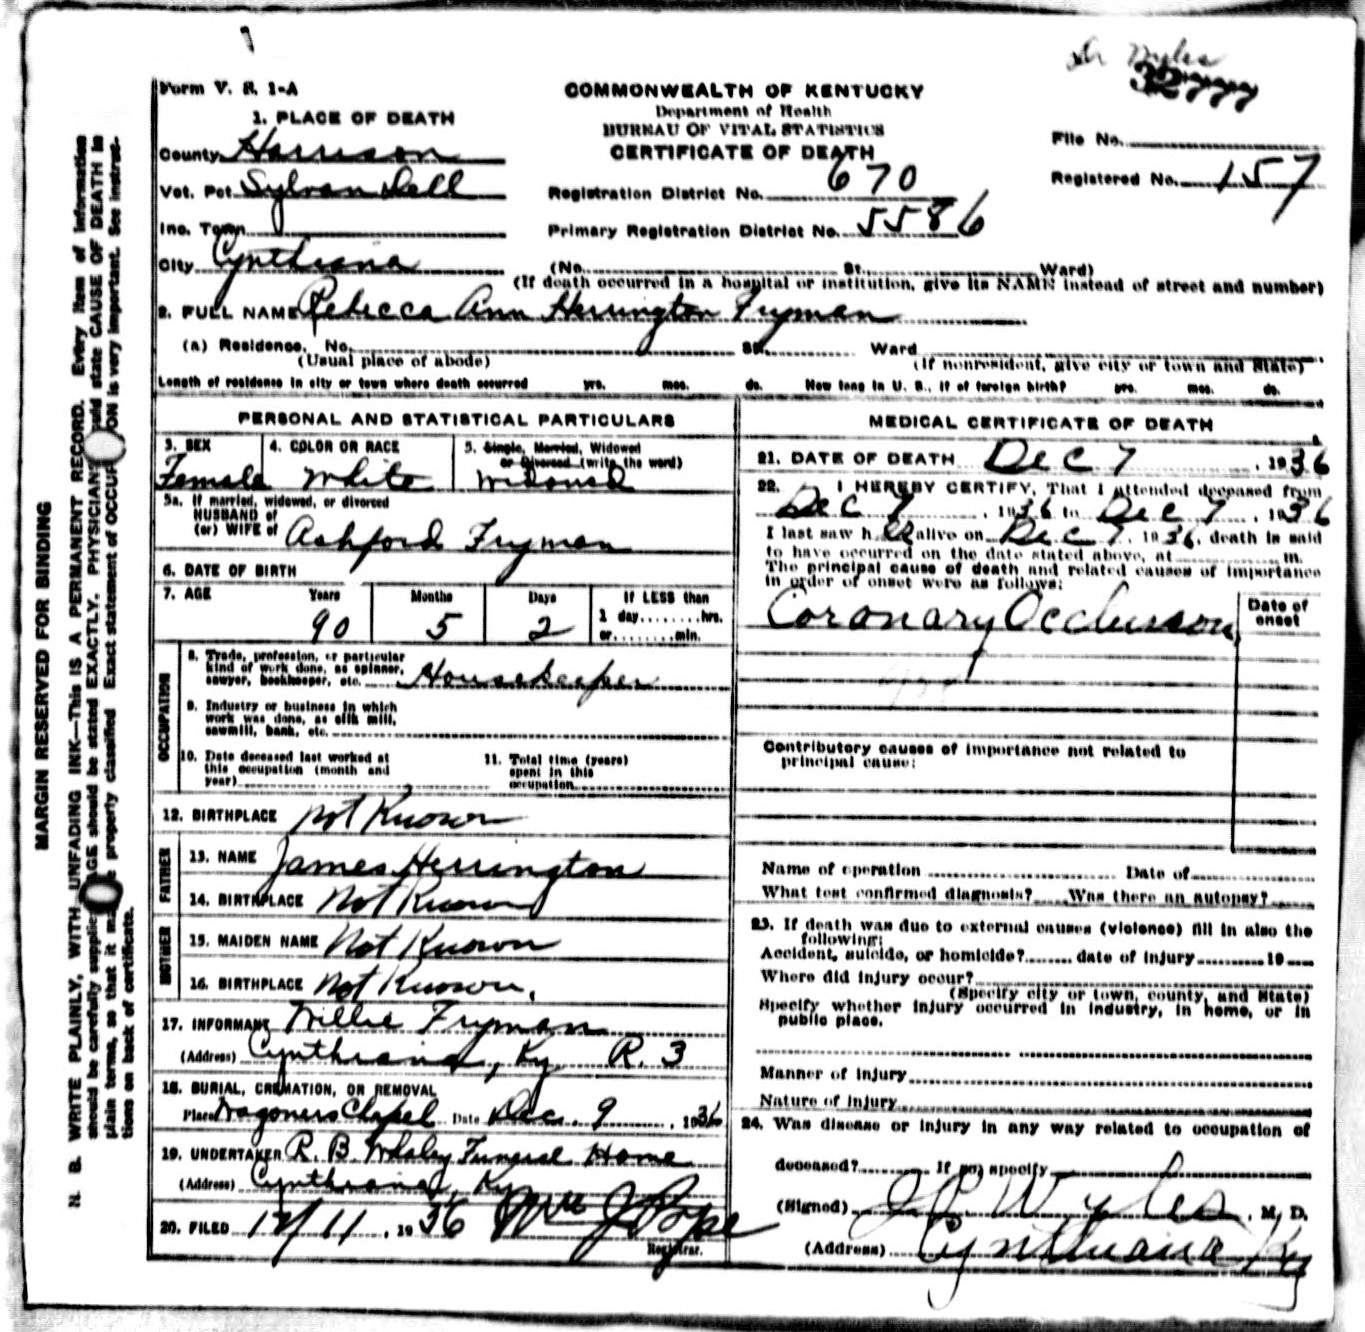 Dr Wyles
32777
Form V. S. 1-A
COMMONWEALTH OF KENTUCKY
Department of Health
BUREAU OF VITAL STATISTICS
CERTIFICATE OF DEATH
1. PLACE OF DEATH
County Harrison
Vot. Pct. Sylvan Dell
Inc. Town
City Cynthiana
File No.
Registered No. 157
Registration District No. 670
Primary Registration District No. 5586
(No. St. Ward)
(If death occurred in a hospital or institution, give its NAME instead of street and number)
2. FULL NAME Rebecca Ann Herrington Fryman
(a) Residence. No. St. Ward
(Usual place of abode) (If nonresident, give city or town and State)
Length of residence in city or town where death occurred yrs. mos. ds. How long in U. S., if of foreign birth? yrs. mos. ds.
PERSONAL AND STATISTICAL PARTICULARS
3. SEX 4. COLOR OR RACE 5. Single, Married, Widowed
or Divorced (write the word)
Female White Widowed
5a. If married, widowed, or divorced
HUSBAND of
(or) WIFE of Ashford Fryman
6. DATE OF BIRTH
7. AGE Years Months Days If LESS than
1 day........hrs.
90 5 2 or........min.
OCCUPATION
8. Trade, profession, or particular
kind of work done, as spinner,
sawyer, bookkeeper, etc. Housekeeper
9. Industry or business in which
work was done, as silk mill,
sawmill, bank, etc.
10. Date deceased last worked at
this occupation (month and
year)
11. Total time (years)
spent in this
occupation
12. BIRTHPLACE Not Known
FATHER
13. NAME James Herrington
14. BIRTHPLACE Not Known
MOTHER
15. MAIDEN NAME Not Known
16. BIRTHPLACE Not Known.
17. INFORMANT Willie Fryman
(Address) Cynthiana, Ky R. 3
18. BURIAL, CREMATION, OR REMOVAL
Place Wagoners Chapel Date Dec. 9, 1936
19. UNDERTAKER R. B. Whaley Funeral Home
(Address) Cynthiana, Ky
20. FILED 12/11, 1936 Mrs J Pope
Registrar.
MEDICAL CERTIFICATE OF DEATH
21. DATE OF DEATH Dec 7, 1936
22. I HEREBY CERTIFY, That I attended deceased from
Dec 7, 1936 to Dec 7, 1936
I last saw her alive on Dec 7, 1936, death is said
to have occurred on the date stated above, at m.
The principal cause of death and related causes of importance
in order of onset were as follows:
Date of
onset
Coronary Occlusion,
Contributory causes of importance not related to
principal cause:
Name of operation Date of
What test confirmed diagnosis? Was there an autopsy?
23. If death was due to external causes (violence) fill in also the
following:
Accident, suicide, or homicide? date of injury 19
Where did injury occur?
(Specify city or town, county, and State)
Specify whether injury occurred in industry, in home, or in
public place.
Manner of injury
Nature of injury
24. Was disease or injury in any way related to occupation of
deceased? If so, specify
(Signed) J P Wyles, M. D.
(Address) Cynthiana Ky
MARGIN RESERVED FOR BINDING
N. B. WRITE PLAINLY, WITH UNFADING INK—This IS A PERMANENT RECORD. Every item of information
should be carefully supplied. AGE should be stated EXACTLY. PHYSICIANS should state CAUSE OF DEATH in
plain terms, so that it may be properly classified. Exact statement of OCCUPATION is very important. See instruc-
tions on back of certificate.